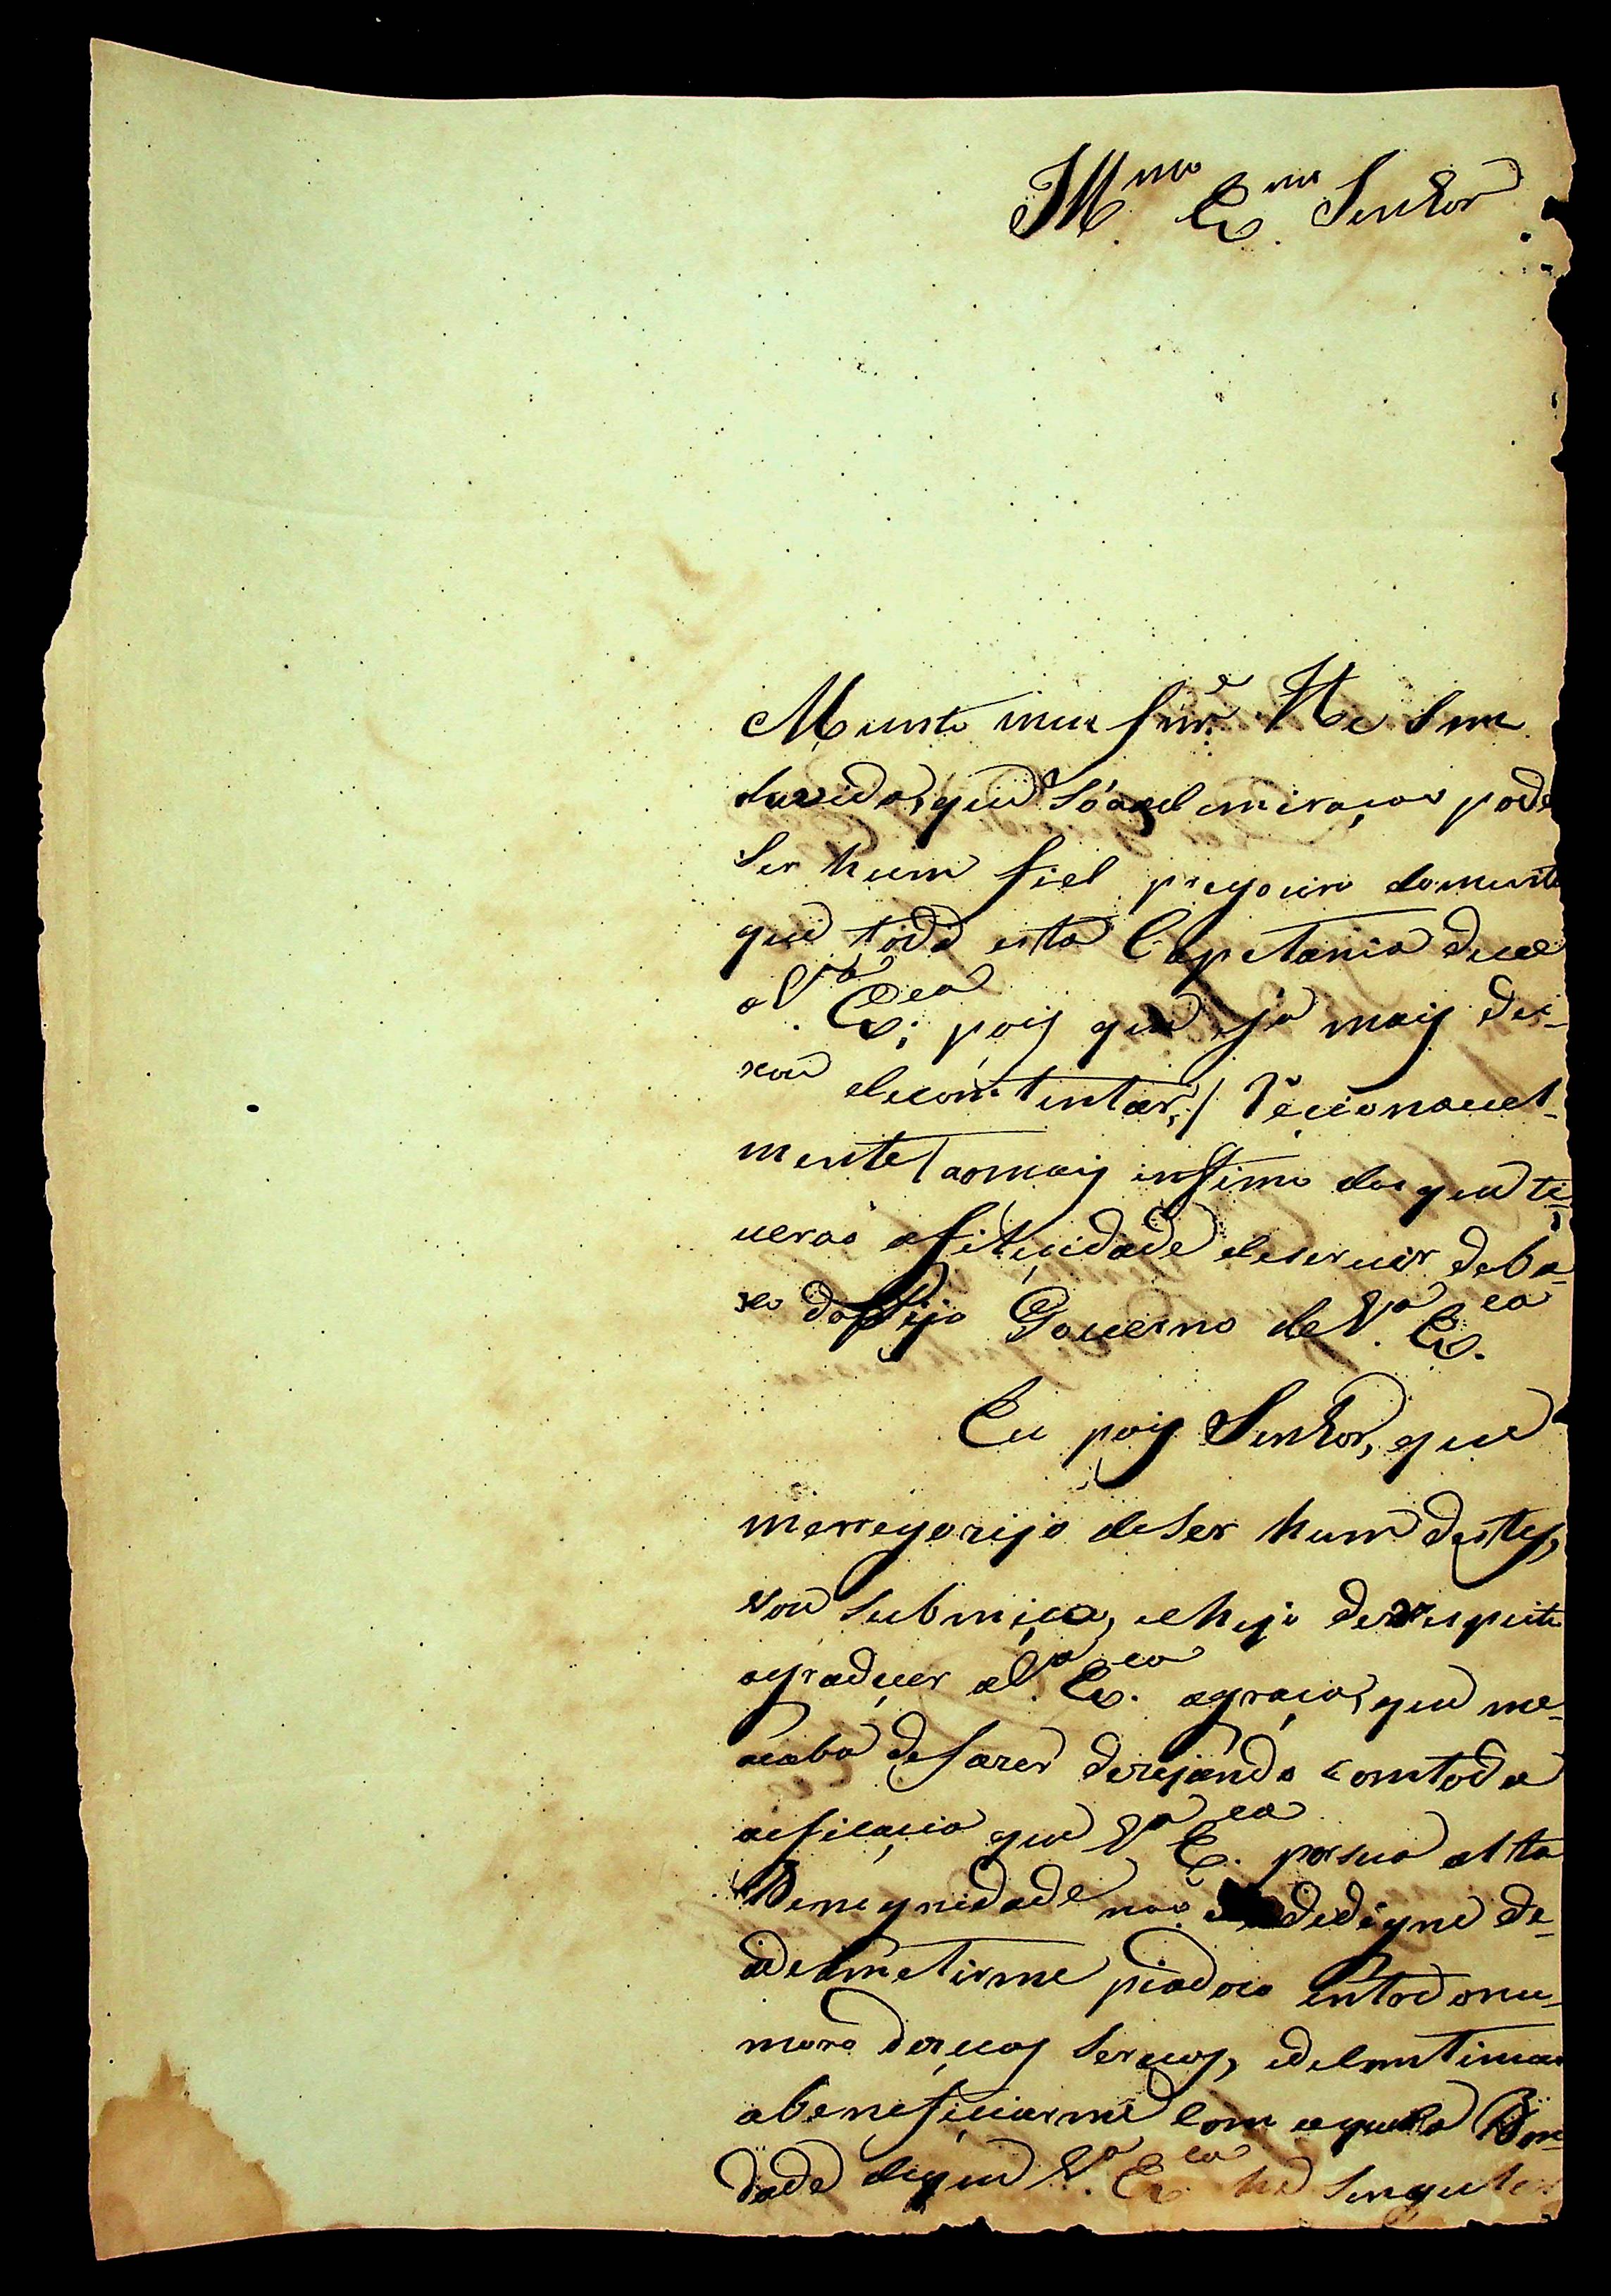 Ill.mo Ex.mo Senhor
Muito meu Snr.e He sem
duvida, que só aadmiraçaõ pode
ser hum fiel pregoeiro domuito
que toda esta Capitania deve
aV.a Ex.ca; pois que ja mais dei-
xou decontentar,/ racionavel-
mente/ aomais infimo dos que ti-
veraõ afelicidade deservir deba-
xo do Governo deV.a Ex.ca
Eu pois Senhor, que
merregozijo deser hum destes,
vou submiço, echeyo derespeito
agradecer aV.a Ex.ca agraça, que me-
acaba defazer dezejando comtoda
aeficacia que V.a Ex.ca porsua alta
Benegnidade naõ dedigne de-
admetirme piadozo entrodonu-
mero deseus servos, edecontinuar
abeneficiarme com aquela Bon-
dade deque V.a Ex.ca he singular